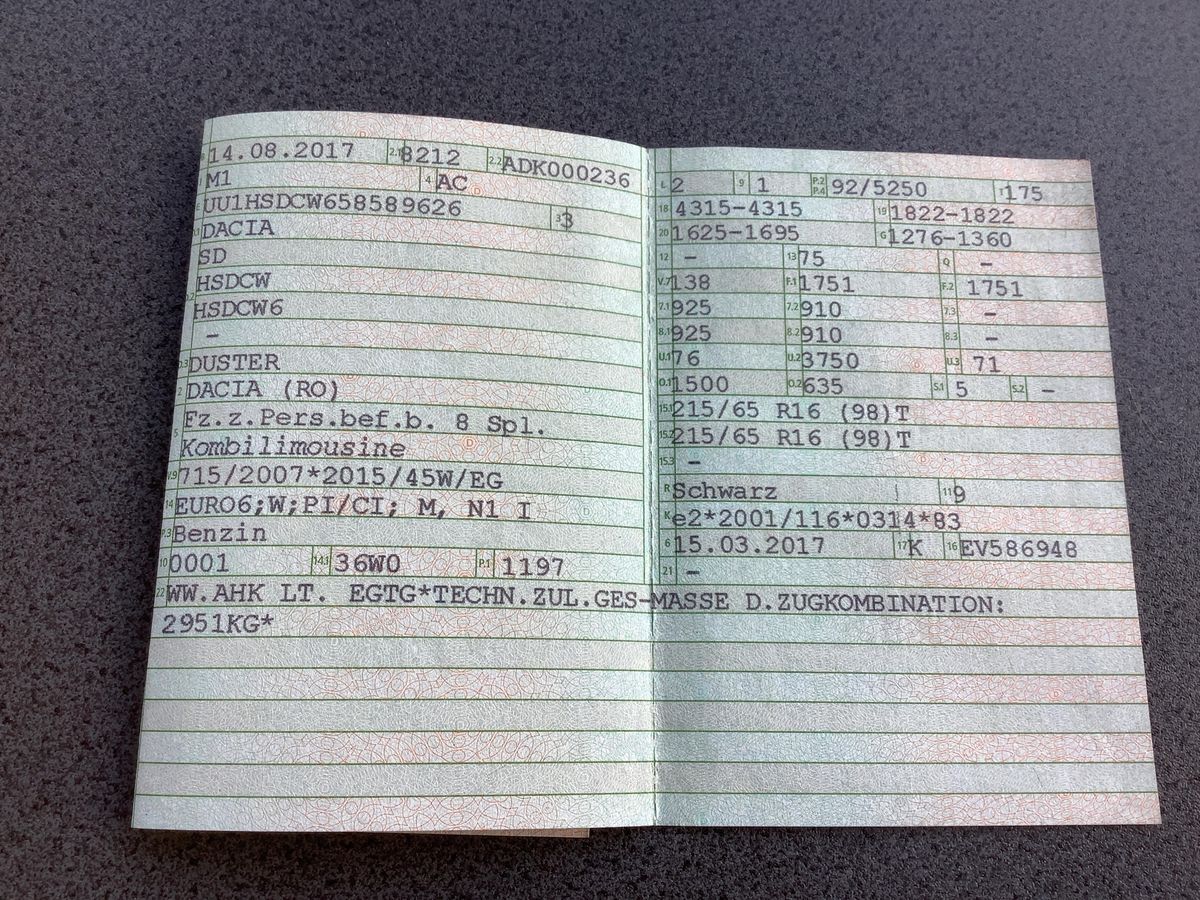 14.08.2017 2.1 8212 2.2 ADK000236
M1 4 AC
UU1HSDCW658589626 3 3
DACIA
SD
HSDCW
HSDCW6
–
DUSTER
2 DACIA (RO)
Fz.z.Pers.bef.b. 8 Spl.
5 Kombilimousine
V.9 715/2007*2015/45W/EG
14 EURO6;W;PI/CI; M, N1 I
P.3 Benzin
10 0001 14.1 36W0 P.1 1197
22 WW.AHK LT. EGTG*TECHN.ZUL.GES-MASSE D.ZUGKOMBINATION:
2951KG*
L 2 9 1 P.2 P.4 92/5250 T 175
18 4315-4315 19 1822-1822
20 1625-1695 G 1276-1360
12 – 13 75 Q –
V.7 138 F.1 1751 F.2 1751
7.1 925 7.2 910 7.3 –
8.1 925 8.2 910 8.3 –
U.1 76 U.2 3750 U.3 71
O.1 1500 O.2 635 S.1 5 S.2 –
15.1 215/65 R16 (98)T
15.2 215/65 R16 (98)T
15.3 –
R Schwarz 11 9
K e2*2001/116*0314*83
6 15.03.2017 17 K 16 EV586948
21 –